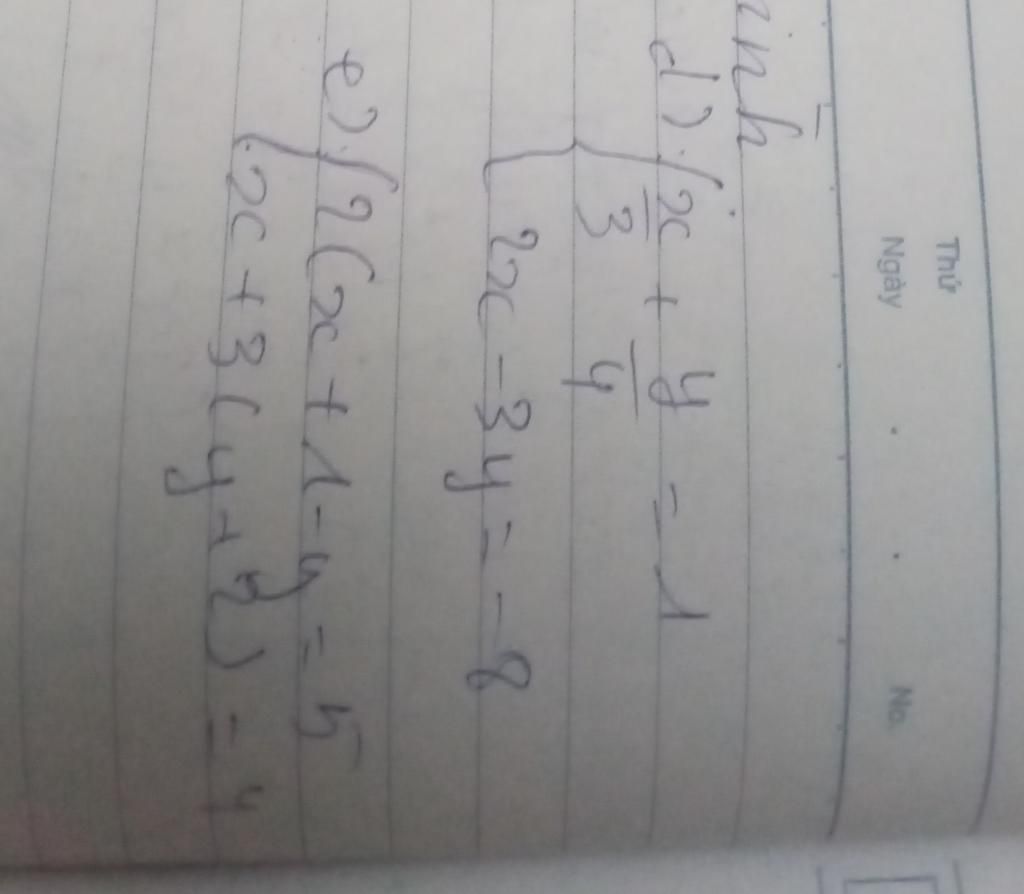 Thứ
Ngày . . No.
ình
d) { x/3 + y/4 = 1
2x - 3y = -8
e) { 2(x + 1 - y = 5
x + 3(y + 2) = 4